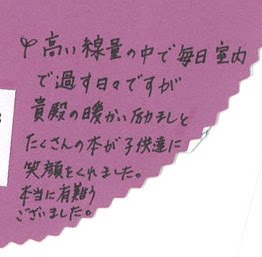 高い線量の中で毎日室内
で過す日々ですが
貴殿の暖かい励ましと
たくさんの本が子供達に
笑顔をくれました。
本当に有難う
ございました。